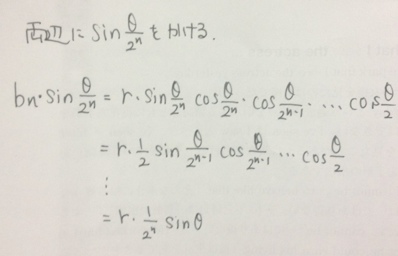 両辺に sin θ/2ⁿ をかける.
bn・sin θ/2ⁿ = r・sin θ/2ⁿ cos θ/2ⁿ・cos θ/2ⁿ⁻¹・ … cos θ/2
= r・1/2 sin θ/2ⁿ⁻¹ cos θ/2ⁿ⁻¹ … cos θ/2
⋮
= r・1/2ⁿ sinθ